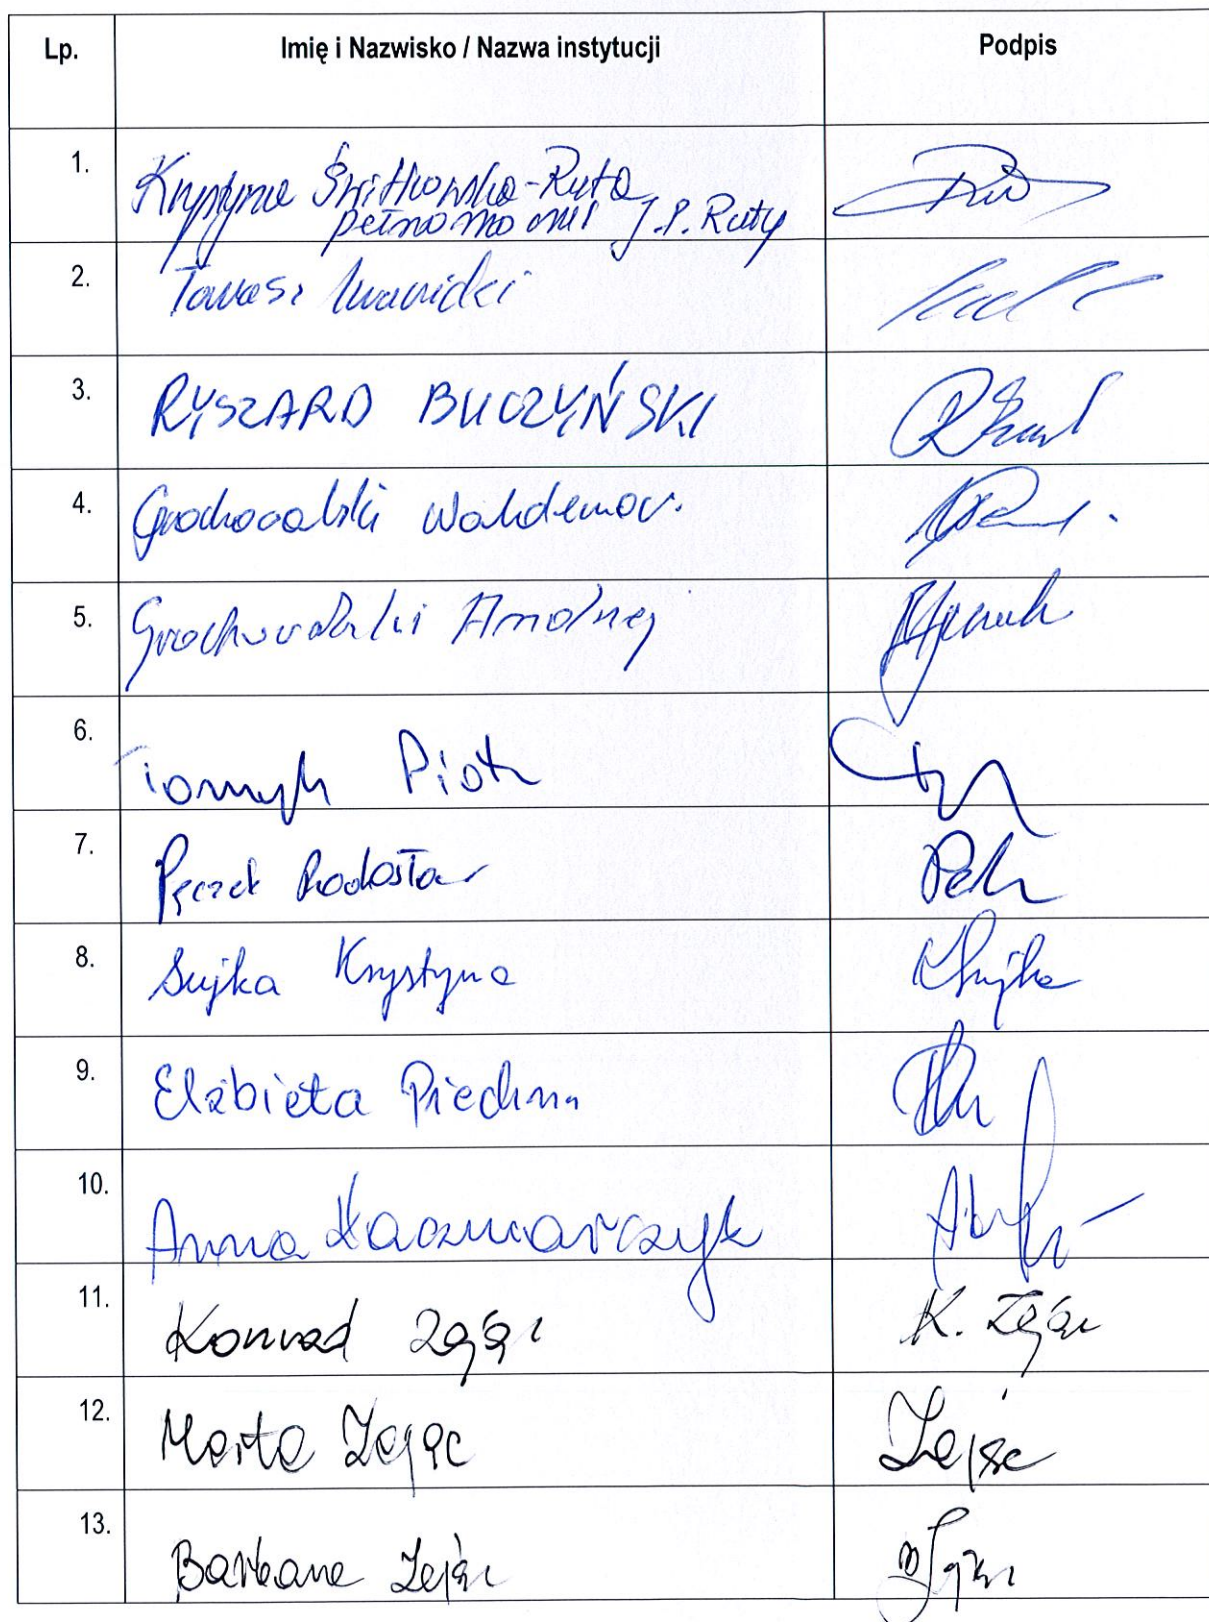 Lp. Imię i Nazwisko / Nazwa instytucji Podpis
1. Krystyna Świtkowska-Ruta
pełnomocnik J.P. Ruty
2. Tomasz Iwanicki
3. RYSZARD BUCZYŃSKI
4. Grochowalski Waldemar.
5. Grochowalski Andrzej
6. Piotr
7. Pęczek Radosław
8. Sujka Krystyna KSujka
9. Elżbieta Piechna
10. Anna Kaczmarczyk
11. Konrad Zając K. Zając
12. Marta Zając Zając
13. Barbara Zając